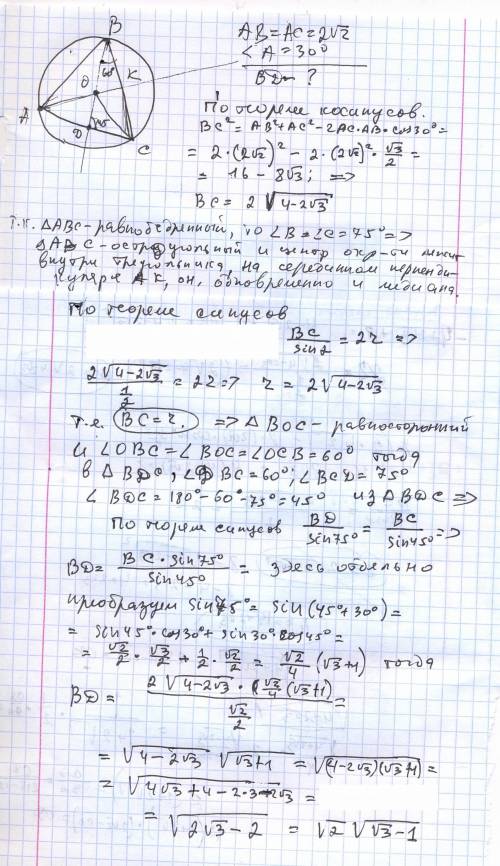 B
60°
O
K
A
D
45°
C
AB = AC = 2√2
∠A = 30°
BD - ?
По теореме косинусов.
BC² = AB² + AC² - 2AC·AB·cos30° =
= 2·(2√2)² - 2·(2√2)²·√3/2 =
= 16 - 8√3; =>
BC = 2√(4-2√3)
т.к. △ABC - равнобедренный, то ∠B = ∠C = 75° =>
△ABC - остроугольный и центр окр-ти лежит
внутри треугольника, на серединном перпенди-
куляре AK, он, одновременно и медиана.
По теореме синусов
BC/sin∠ = 2r =>
2√(4-2√3) / (1/2) = 2r => r = 2√(4-2√3)
т.е. BC = r. => △BOC - равносторонний
и ∠OBC = ∠BOC = ∠OCB = 60° тогда
в △BDC, ∠DBC = 60°; ∠BCD = 75°
∠BDC = 180° - 60° - 75° = 45° из △BDC =>
По теореме синусов BD/sin75° = BC/sin45° =>
BD = BC·sin75°/sin45° = здесь отдельно
преобразуем sin75° = sin(45° + 30°) =
= sin45°·cos30° + sin30°·cos45° =
= √2/2 · √3/2 + 1/2 · √2/2 = √2/4 (√3+1) тогда
BD = 2√(4-2√3) · (√2/4 (√3+1) / (√2/2) =
= √(4-2√3) √(√3+1) = √((4-2√3)(√3+1)) =
= √(4√3 + 4 - 2·3 - 2√3) =
= √(2√3 - 2) = √2 √(√3-1)